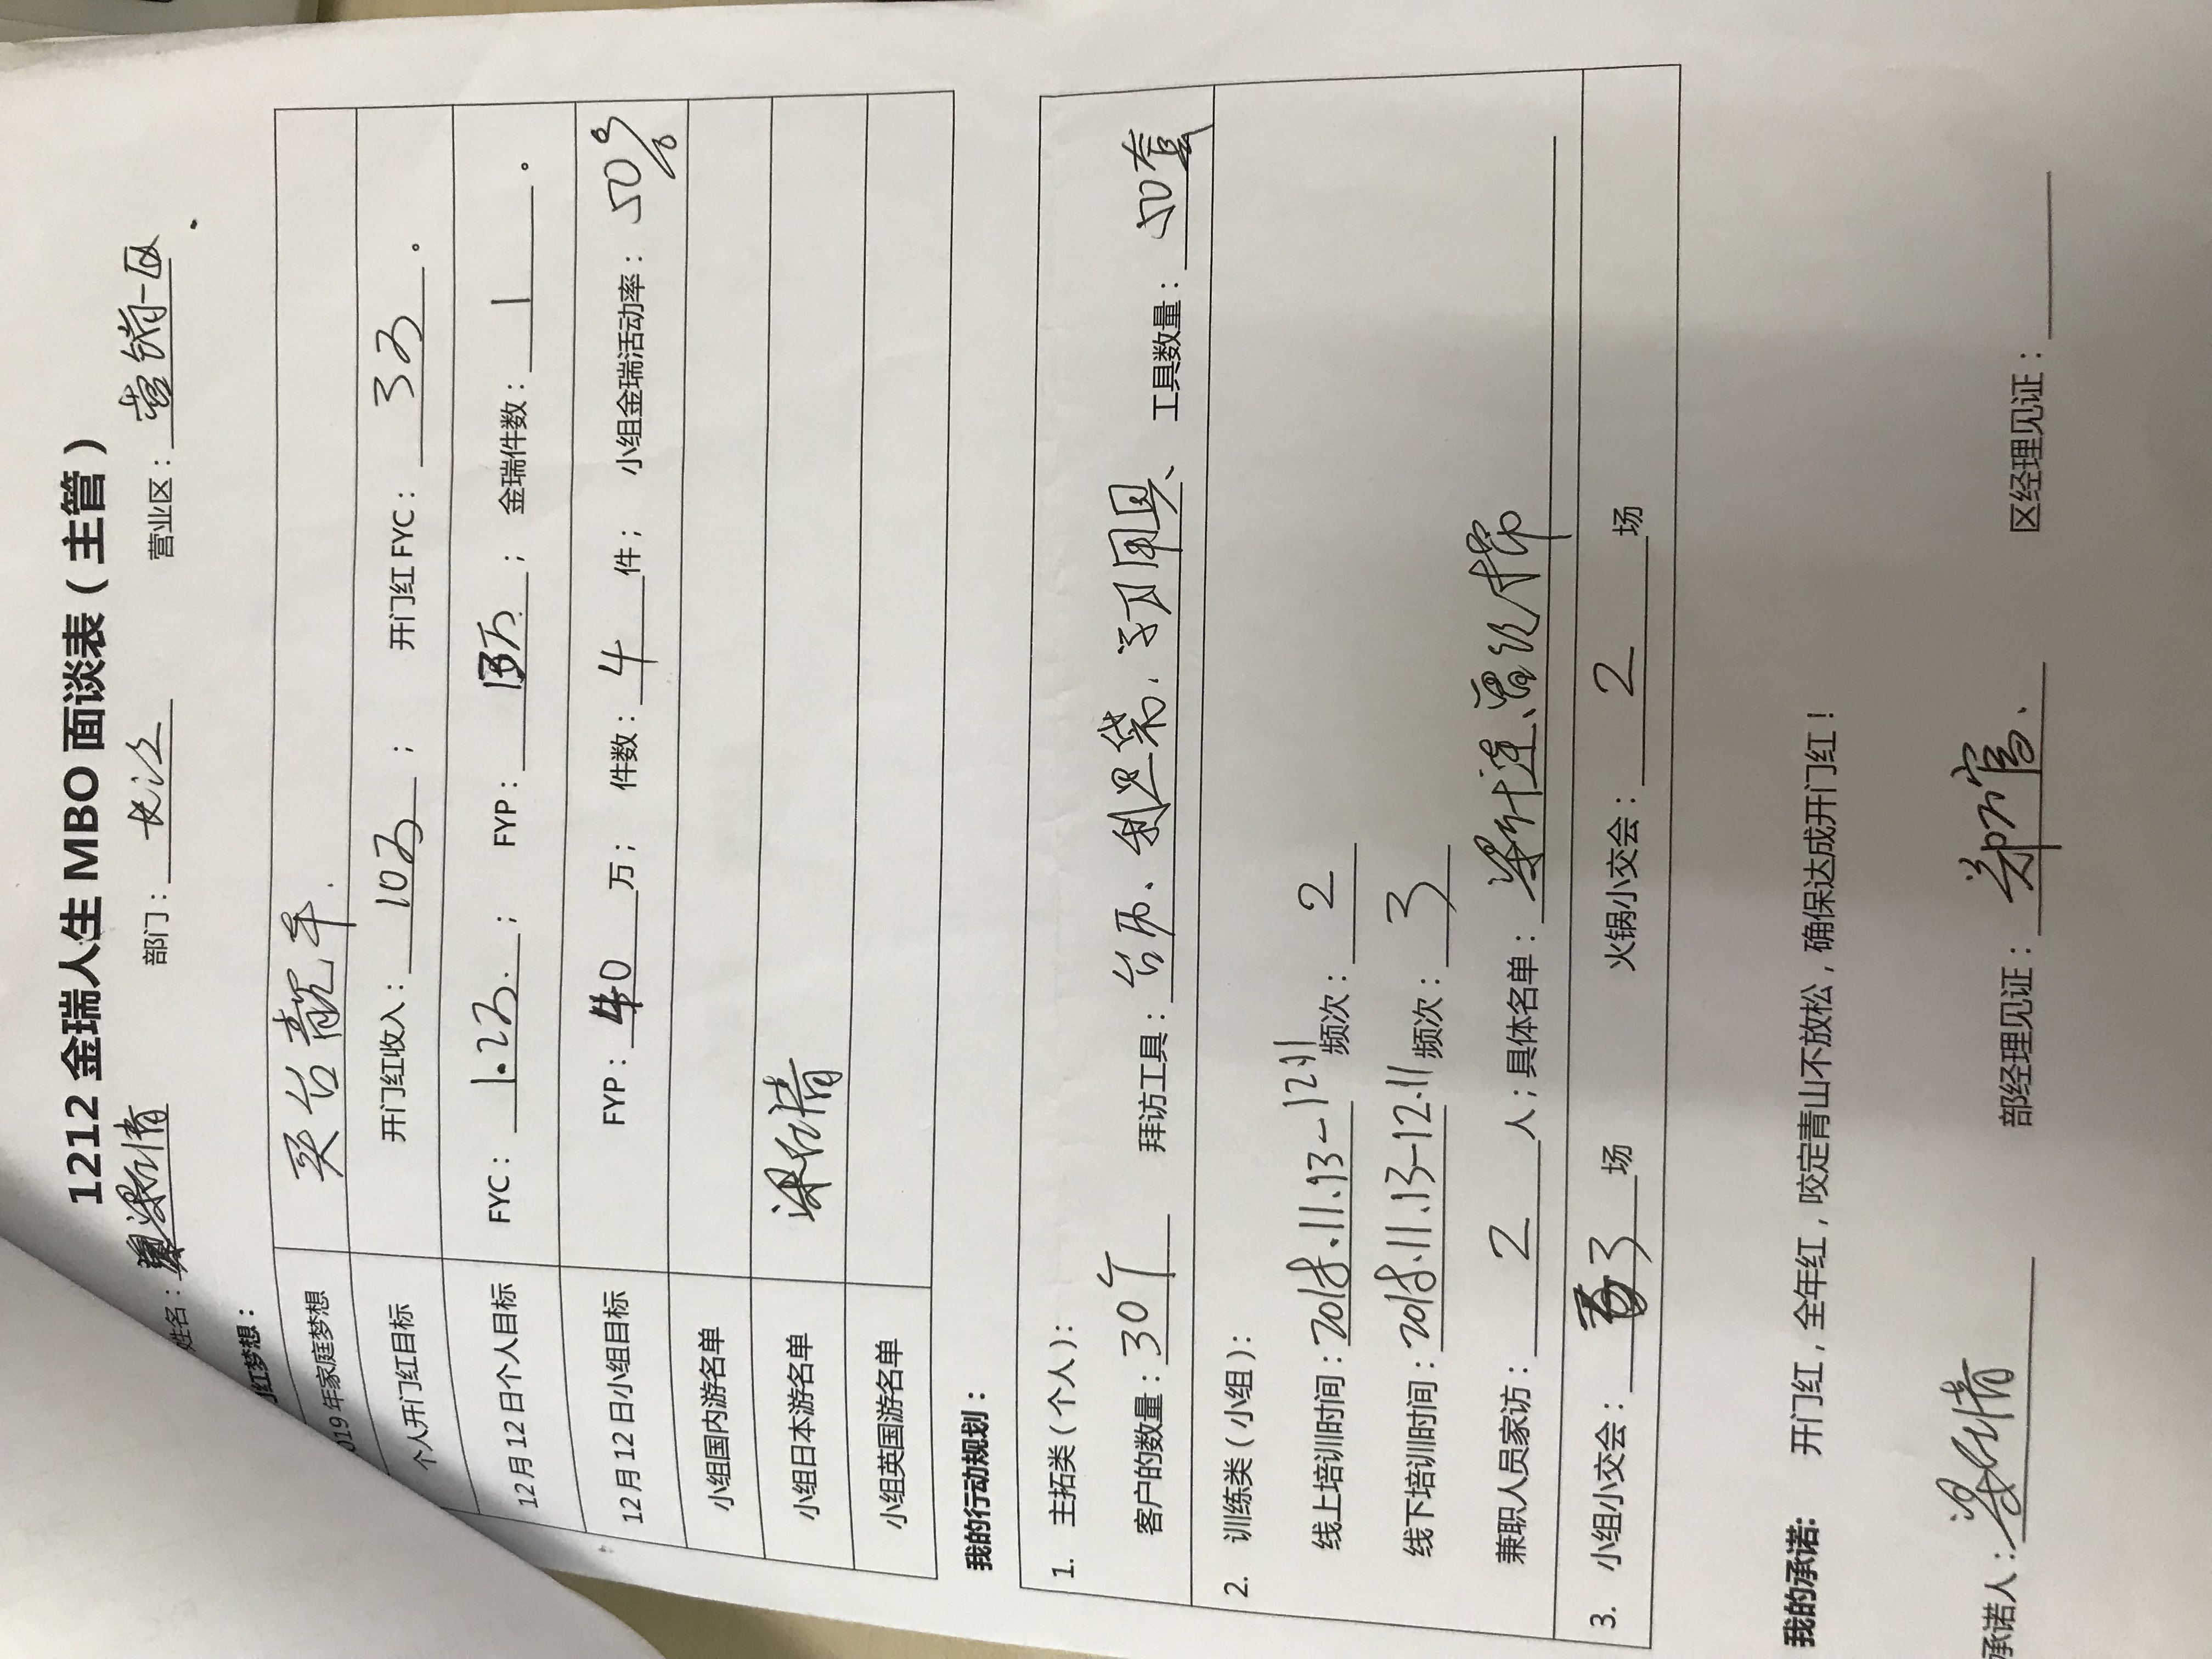 1212 金瑞人生 MBO 面谈表（主管）
姓名： 部门：长江 营业区：营销一区
红梦想：
019 年家庭梦想 买台靓车.
个人开门红目标 开门红收入：10万； 开门红 FYC：3万。
12 月 12 日个人目标 FYC：1.2万.； FYP： ； 金瑞件数：1。
12 月 12 日小组目标 FYP：40万； 件数：4件； 小组金瑞活动率：50%
小组国内游名单
小组日本游名单 梁竹倩
小组英国游名单
我的行动规划：
1. 主拓类（个人）：
客户的数量：30个 拜访工具：台历、利是袋、 工具数量：50套
2. 训练类（小组）：
线上培训时间：2018.11.13-12.11 频次：2
线下培训时间：2018.11.13-12.11 频次：3
兼职人员家访：2人；具体名单：
3. 小组小交会：3场 火锅小交会：2场
我的承诺： 开门红，全年红，咬定青山不放松，确保达成开门红！
承诺人： 部经理见证： 区经理见证：